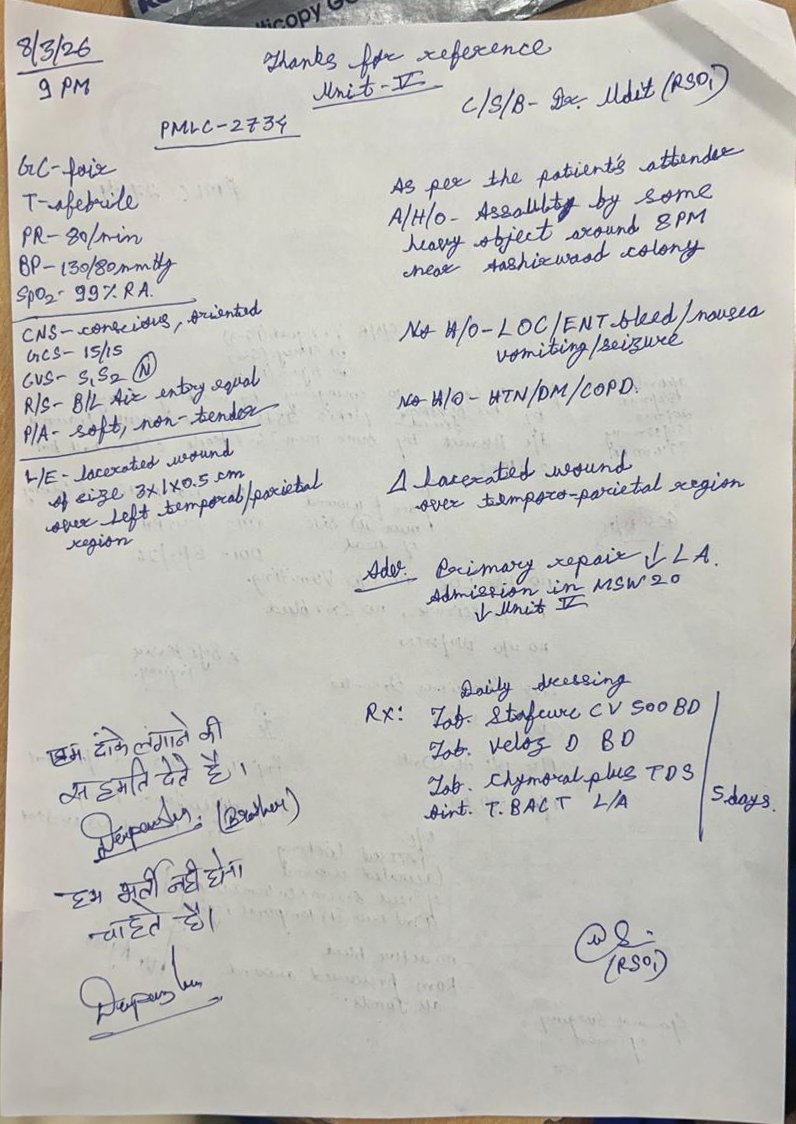 8/3/26
9 PM
Thanks for reference
Unit-V
C/S/B- Dr. Udit (RSO1)
PMLC-2734
GC-fair
T-afebrile
PR-80/min
BP-130/80mmHg
SpO2- 99% RA.
CNS-conscious, oriented
GCS- 15/15
CVS- S1S2 (N)
R/S- B/L Air entry equal
P/A- soft, non-tender
L/E- lacerated wound
of size 3x1x0.5 cm
over left temporal/parietal
region
As per the patient's attender
A/H/O- Assault by some
heavy object around 8PM
near Aashirwad colony
No H/O-LOC/ENT bleed/nausea
vomiting/seizure
No H/O- HTN/DM/COPD.
Δ Lacerated wound
over temporo-parietal region
Adv. Primary repair ↓ LA.
Admission in MSW 20
↓ Unit V
Daily dressing
Rx: Tab. Stafcure CV 500 BD
Tab. Veloz D BD
Tab. Chymoral plus TDS
Oint. T. BACT L/A
5 days.
हम टांके लगाने की
सहमति देते है।
Deepanshu. (Brother)
हम भर्ती नही होना
चाहते है।
Deepanshu
(RSO1)